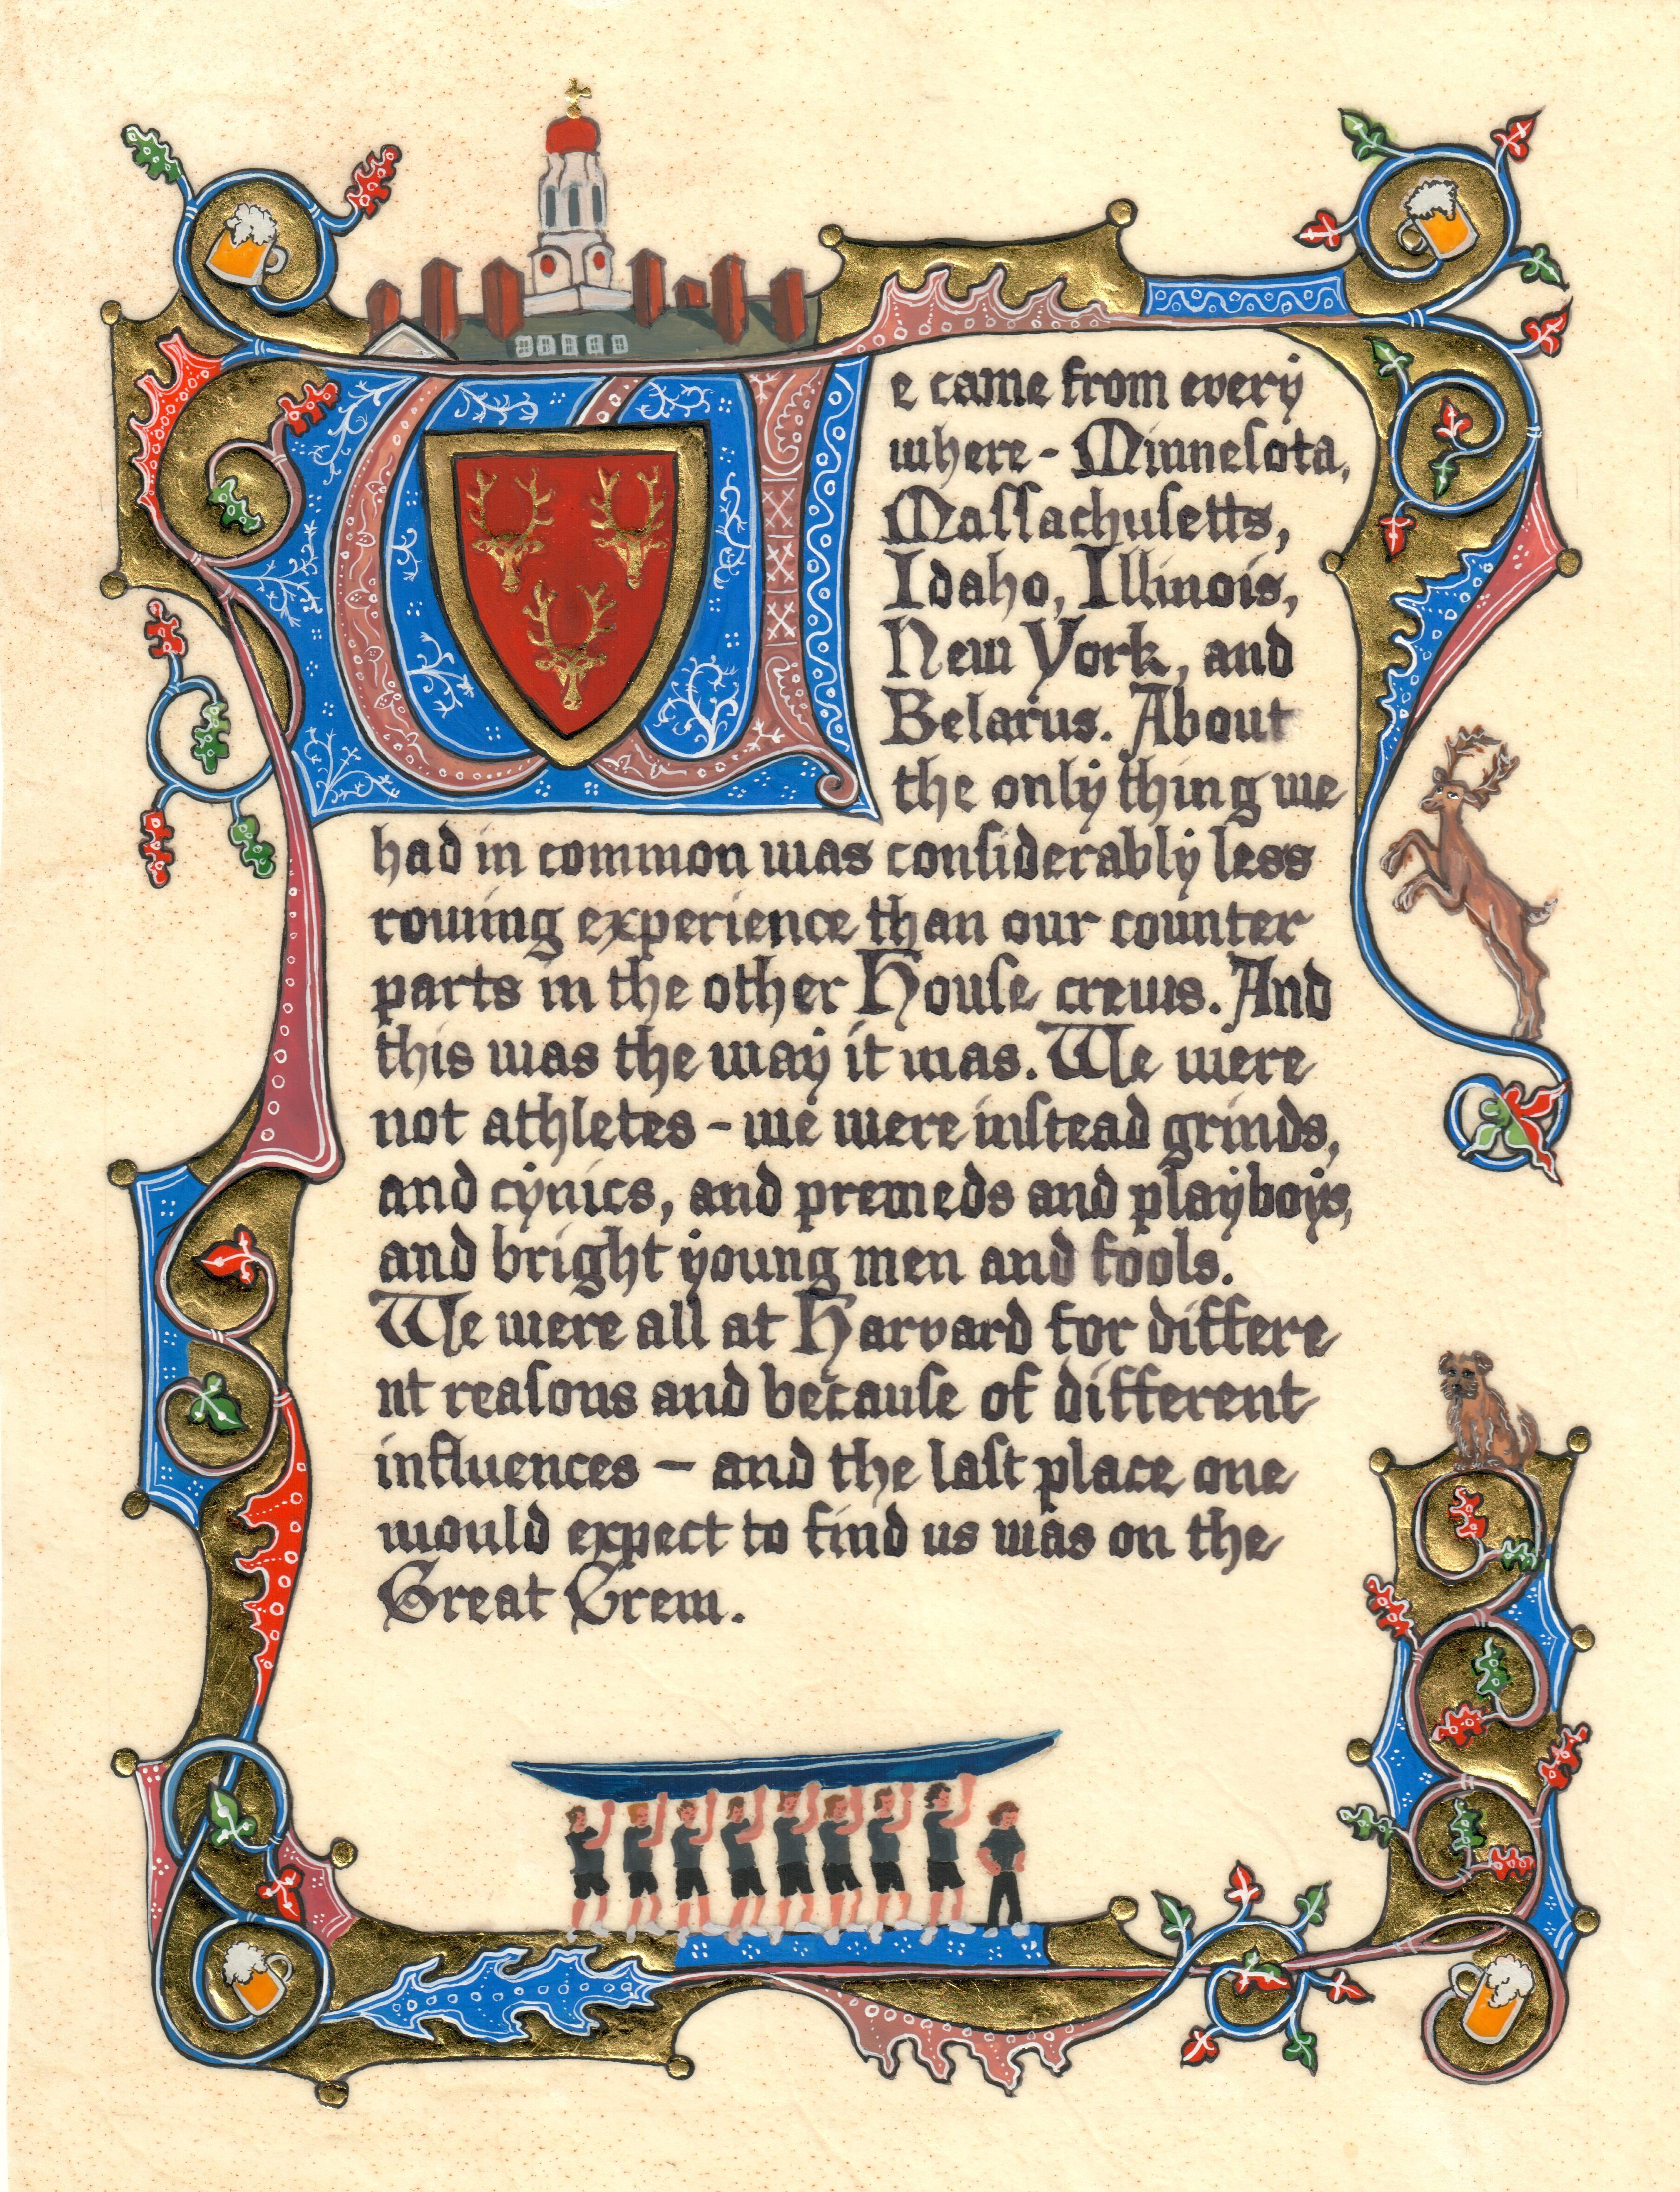 We came from every
where - Minneſota,
Maſſachuſetts,
Idaho, Illinois,
New York, and
Belarus. About
the only thing we
had in common was conſiderably less
rowing experience than our counter
parts in the other Houſe crews. And
this was the way it was. We were
not athletes - we were inſtead grinds,
and cynics, and premeds and playboys,
and bright young men and fools.
We were all at Harvard for differe
nt reaſons and becauſe of different
influences - and the laſt place one
would expect to find us was on the
Great Crew.